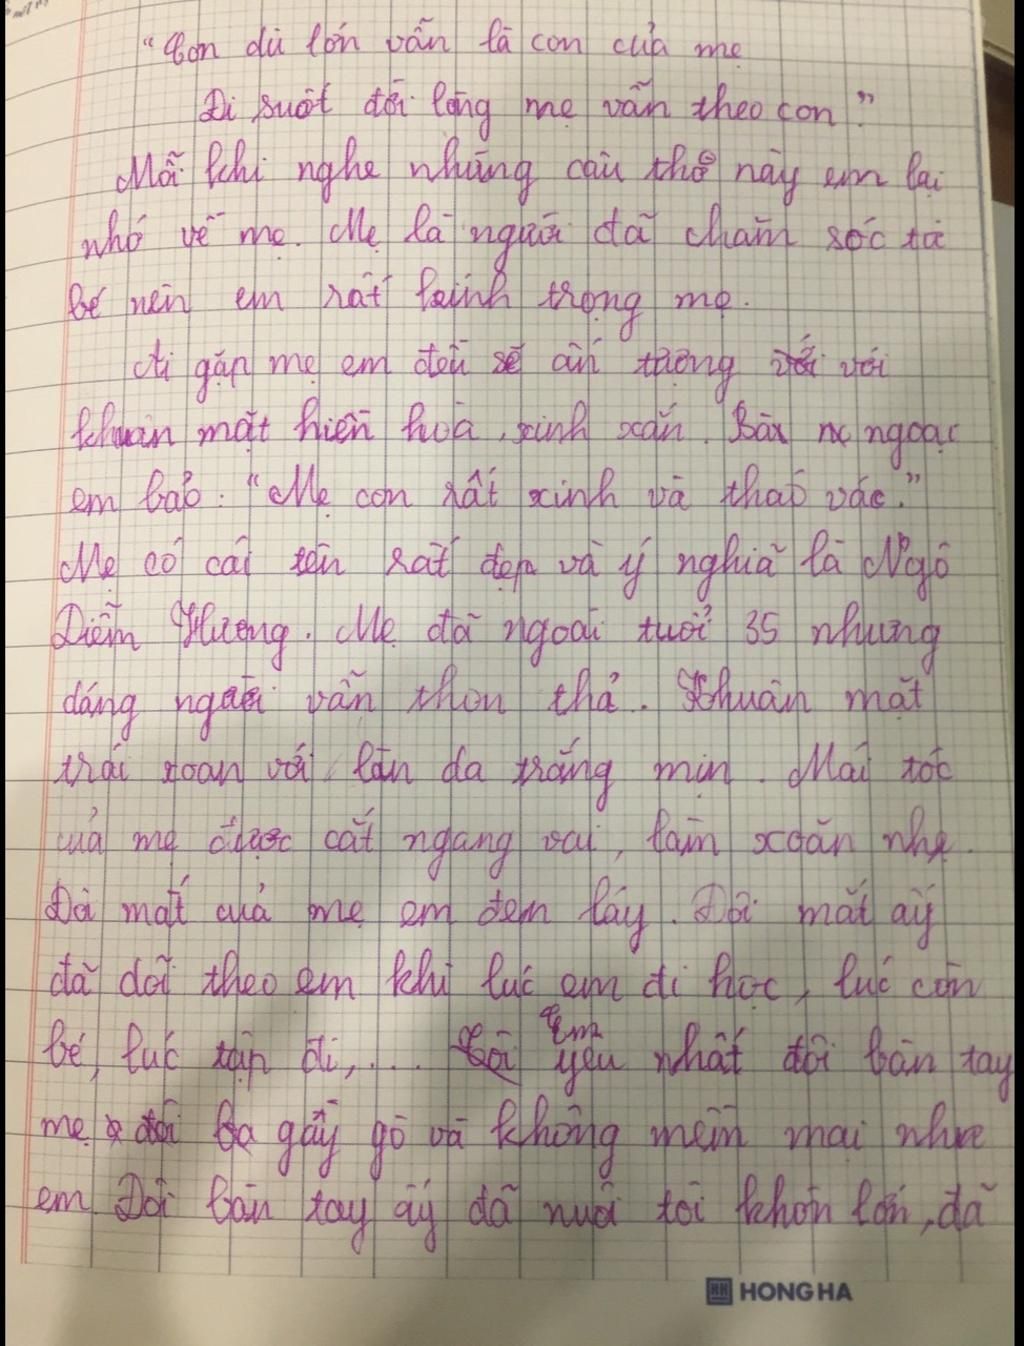 “Con dù lớn vẫn là con của mẹ
Đi suốt đời lòng mẹ vẫn theo con”
Mỗi khi nghe những câu thơ này em lại
nhớ về mẹ. Mẹ là người đã chăm sóc từ
bé nên em rất kính trọng mẹ.
Ai gặp mẹ em đều sẽ ấn tượng với
khuân mặt hiền hoà, xinh xắn. Bà ngoại
em bảo: “Mẹ con rất xinh và tháo vác.”
Mẹ có cái tên rất đẹp và ý nghĩa là Ngô
Diễm Hương. Mẹ đã ngoài tuổi 35 nhưng
dáng người vẫn thon thả. Khuân mặt
trái xoan với làn da trắng mịn. Mái tóc
của mẹ được cắt ngang vai, làm xoăn nhẹ.
Đôi mắt của mẹ em đen láy. Đôi mắt ấy
đã dõi theo em khi lúc em đi học, lúc còn
bé, lúc tập đi,.... Em yêu nhất đôi bàn tay
mẹ gầy gò và không mềm mại như
em. Đôi bàn tay ấy đã nuôi tôi khôn lớn, đã
HONG HA